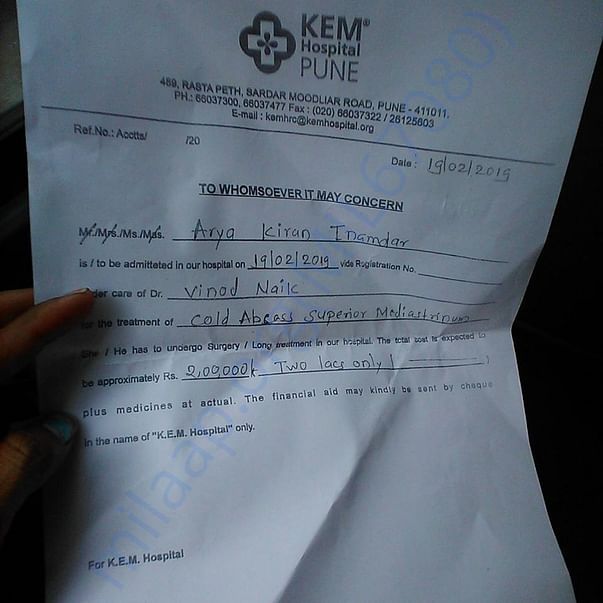 KEM®
Hospital
PUNE
489, RASTA PETH, SARDAR MOODLIAR ROAD, PUNE - 411011.
PH.: 66037300, 66037477 Fax : (020) 66037322 / 26125603
E-mail : kemhrc@kemhospital.org
Ref.No.: Acctts/ /20
Date : 19/02/2019
TO WHOMSOEVER IT MAY CONCERN
Mr./Mrs./Ms./Mas. Arya Kiran Inamdar
is / to be admitteted in our hospital on 19/02/2019 vide Registration No.
der care of Dr. Vinod Naik
for the treatment of Cold Abcass Superior Mediastrinum
She / He has to undergo Surgery / Long treatment in our hospital. The total cost is expected to
be approximately Rs. 2,00,000/- Two lacs only ( )
plus medicines at actual. The financial aid may kindly be sent by cheque
in the name of "K.E.M. Hospital" only.
For K.E.M. Hospital